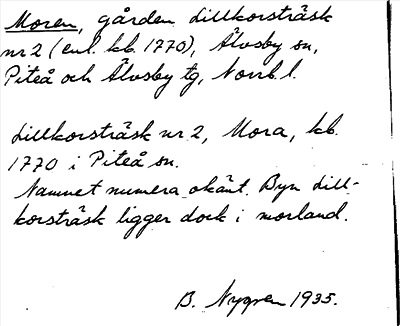 Moren, gården Lillkorsträsk
nr 2 (enl. kb. 1770), Älvsby sn,
Piteå och Älvsby tg, Norrb. l.
Lillkorsträsk nr 2, Mora, kb.
1770 i Piteå sn.
Namnet numera okänt. Byn Lill-
korsträsk ligger dock i morland.
B. Nygren 1935.